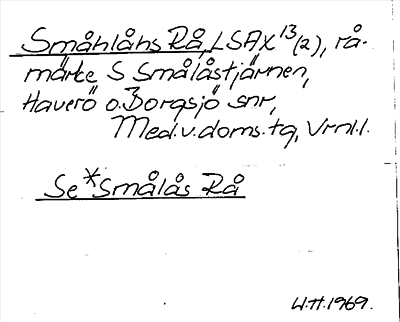 Småhlåhs Rå, LSA X 13 (2), rå-
märke S Smålåstjärnen,
Haverö o. Borgsjö snr,
Med.v.doms.tg, Vrnl.l.
Se *Smålås Rå
W.H. 1969.